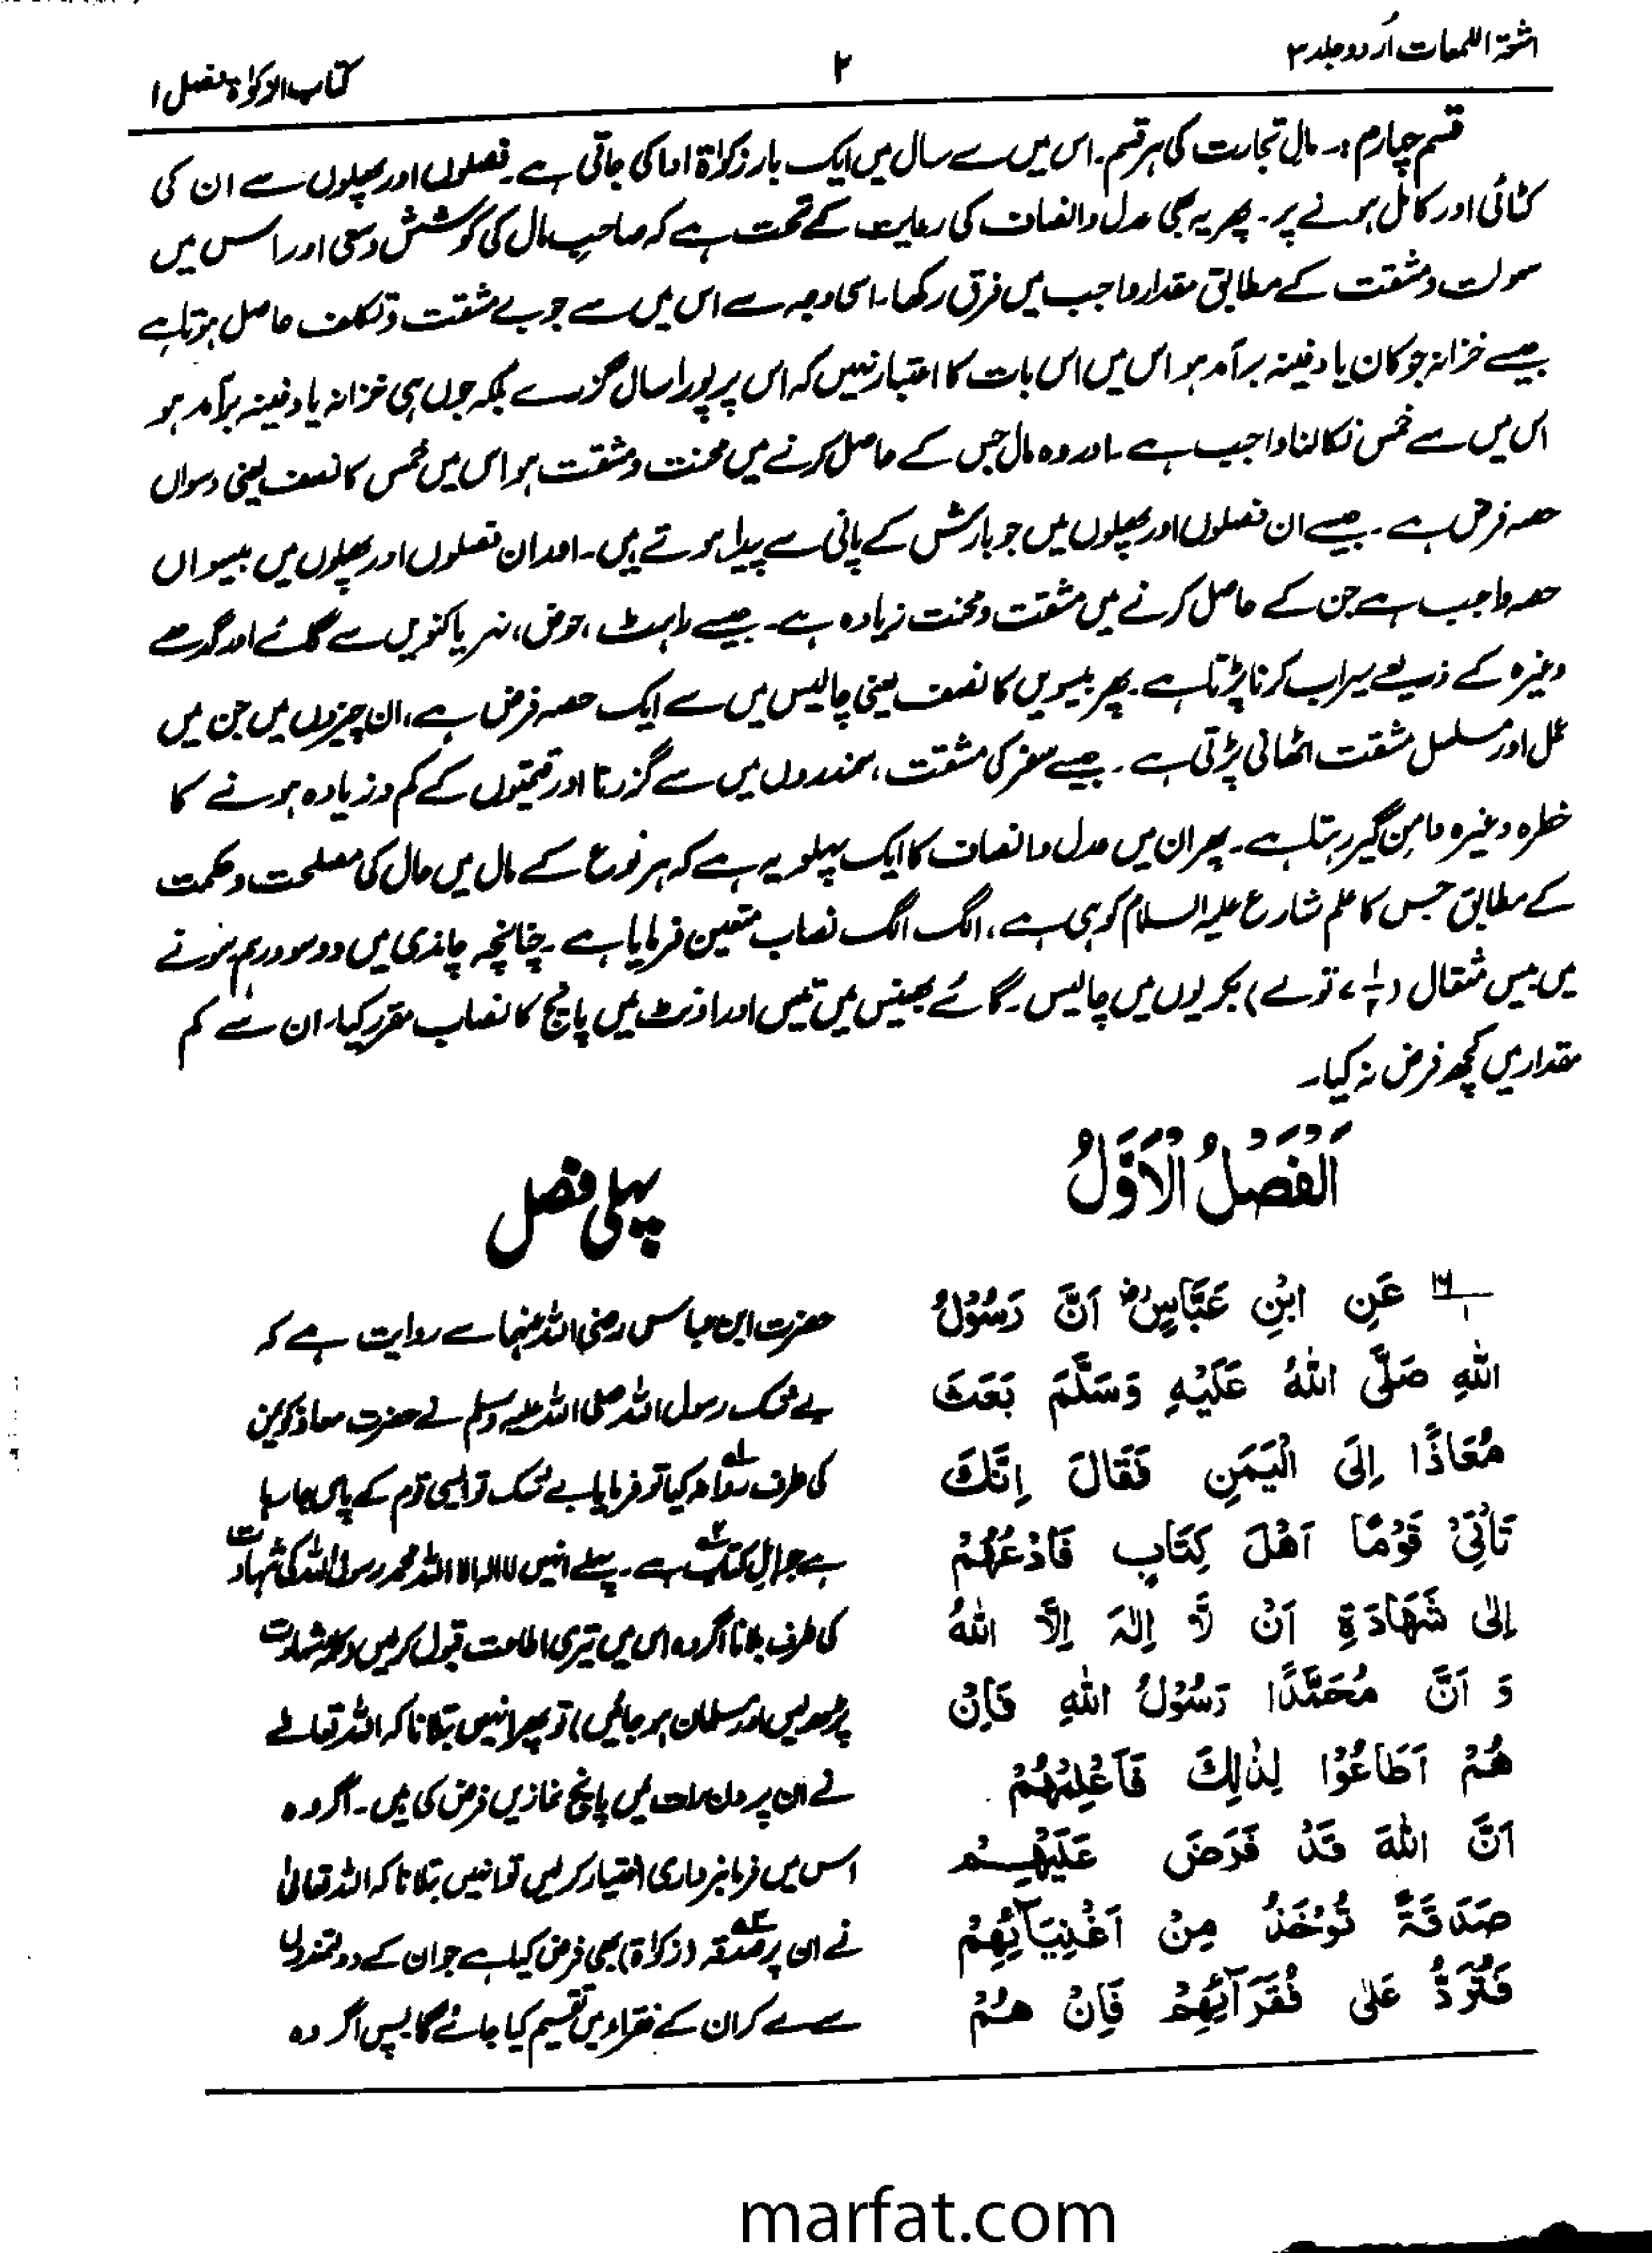 اشعۃ اللمعات اُردو جلد ۳
۲
کتاب الزکوٰۃ فصل ۱
قسم چہارم :۔ مالِ تجارت کی ہر قسم۔ اس میں سے سال میں ایک بار زکوٰۃ ادا کی جاتی ہے۔ فصلوں اور پھلوں سے ان کی
کٹائی اور کامل ہونے پر۔ پھر یہ بھی عدل و انصاف کی رعایت کے تحت ہے کہ صاحبِ مال کی کوشش و سعی اور اس میں
سہولت و مشقت کے مطابق مقدار واجب میں فرق رکھا۔ اسی وجہ سے اس میں سے جو بے مشقت و تکلف حاصل ہوتا ہے
جیسے خزانہ جو کان یا دفینہ برآمد ہو اس میں اس بات کا اعتبار نہیں کہ اس پر پورا سال گزرے بلکہ جوں ہی خزانہ یا دفینہ برآمد ہو
اس میں سے خمس نکالنا واجب ہے۔ اور وہ مال جس کے حاصل کرنے میں محنت و مشقت ہو اس میں خمس کا نصف یعنی دسواں
حصہ فرض ہے۔ جیسے ان فصلوں اور پھلوں میں جو بارش کے پانی سے پیدا ہوتے ہیں۔ اور ان فصلوں اور پھلوں میں بیسواں
حصہ واجب ہے جن کے حاصل کرنے میں مشقت و محنت زیادہ ہے۔ جیسے راہٹ، حوض، نہر یا کنویں سے گائے اور گدھے
وغیرہ کے ذریعے سیراب کرنا پڑتا ہے۔ پھر بیسویں کا نصف یعنی چالیس میں سے ایک حصہ فرض ہے، ان چیزوں میں جن میں
عمل اور مسلسل مشقت اٹھانی پڑتی ہے۔ جیسے سفر کی مشقت، سمندروں میں سے گزرنا اور قیمتوں کے کم و زیادہ ہونے کا
خطرہ وغیرہ دامن گیر رہتا ہے۔ پھر ان میں عدل و انصاف کا ایک پہلو یہ ہے کہ ہر نوع کے مال میں حال کی مصلحت و حکمت
کے مطابق جس کا علم شارع علیہ السلام کو ہی ہے، الگ الگ نصاب متعین فرمایا ہے۔ چنانچہ چاندی میں دو سو درہم، سونے
میں بیس مثقال (۷½ تولے) بکریوں میں چالیس۔ گائے بھینس میں تیس اور اونٹ میں پانچ کا نصاب مقرر کیا۔ ان سے کم
مقدار میں کچھ فرض نہ کیا۔
اَلْفَصْلُ الْاَوَّلُ
عَنِ ابْنِ عَبَّاسٍؓ اَنَّ رَسُوْلُ
اللّٰهِ صَلَّى اللّٰهُ عَلَيْهِ وَسَلَّمَ بَعَثَ
مُعَاذًا اِلَى الْيَمَنِ فَقَالَ اِنَّكَ
تَأْتِيْ قَوْمًا اَهْلَ كِتَابٍ فَادْعُهُمْ
اِلٰى شَهَادَةِ اَنْ لَّا اِلٰهَ اِلَّا اللّٰهُ
وَ اَنَّ مُحَمَّدًا رَسُوْلُ اللّٰهِ فَاِنْ
هُمْ اَطَاعُوْا لِذٰلِكَ فَاَعْلِمْهُمْ
اَنَّ اللّٰهَ قَدْ فَرَضَ عَلَيْهِمْ
صَدَقَةً تُؤْخَذُ مِنْ اَغْنِيَآئِهِمْ
فَتُرَدُّ عَلٰى فُقَرَآئِهِمْ فَاِنْ هُمْ
پہلی فصل
حضرت ابن عباس رضی اللہ عنہما سے روایت ہے کہ
بے شک رسول اللہ صلی اللہ علیہ وسلم نے حضرت معاذ کو یمن
کی طرف روانہ کیا تو فرمایا بے شک تو ایسی قوم کے پاس جا رہا
ہے جو اہل کتاب ہے۔ پہلے انہیں لا الہ الا اللہ محمد رسول اللہ کی شہادت
کی طرف بلانا اگر وہ اس میں تیری اطاعت قبول کر لیں (کلمہ شہادت
پڑھ لیں اور مسلمان ہو جائیں) تو پھر انہیں بتلانا کہ اللہ تعالےٰ
نے ان پر دن رات میں پانچ نمازیں فرض کی ہیں۔ اگر وہ
اس میں فرمانبرداری اختیار کر لیں تو انہیں بتلانا کہ اللہ تعالیٰ
نے ان پر صدقہ (زکوٰۃ) بھی فرض کیا ہے جو ان کے دولتمندوں
سے لے کر ان کے فقراء میں تقسیم کیا جائے گا۔ پس اگر وہ
marfat.com